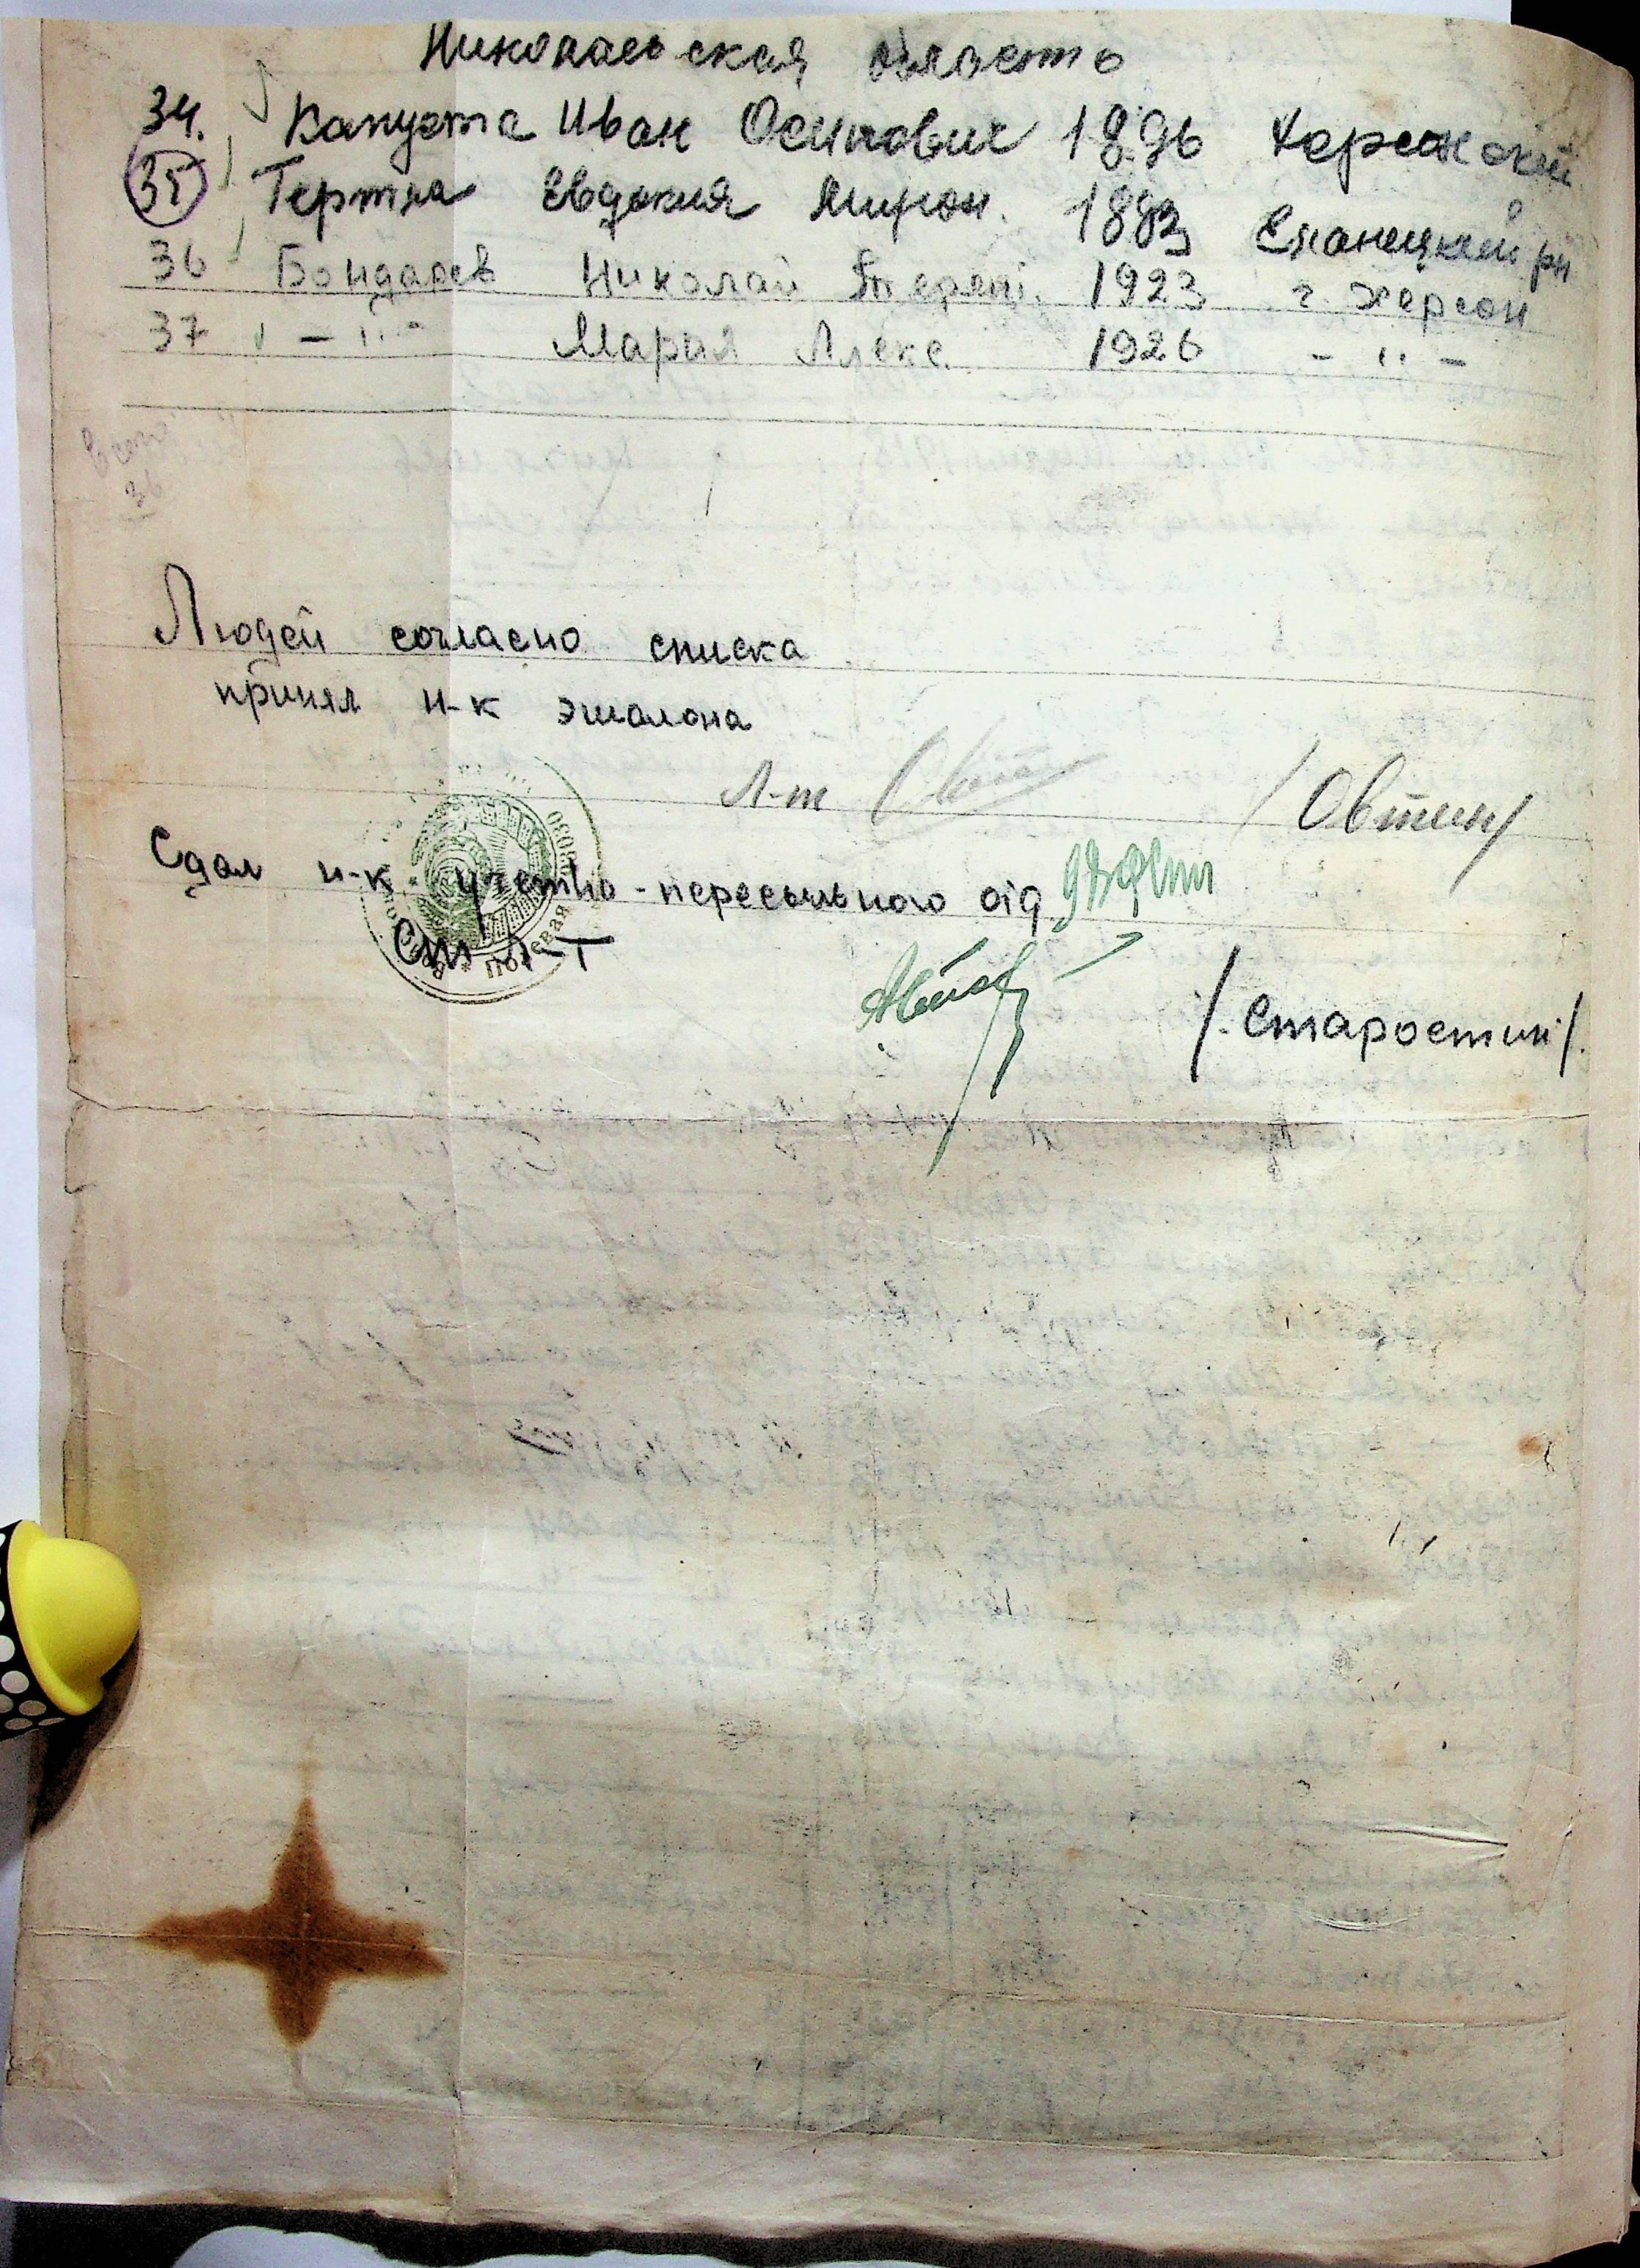 Николаевская область
34. Капуста Иван Осипович 1896 Херсонский
35 Евдокия Мирон. 1883 Еланецкий рн
36 Бондарев Николай 1923 г. Херсон
37 – " – Мария Алекс. 1926 – " –
Всего
36
Людей согласно списка
принял н-к эшалона
Л-т /Овтин/
Сдал н-к учетно-пересыльного
Ст Л-Т
/Старостин/.
Полевая